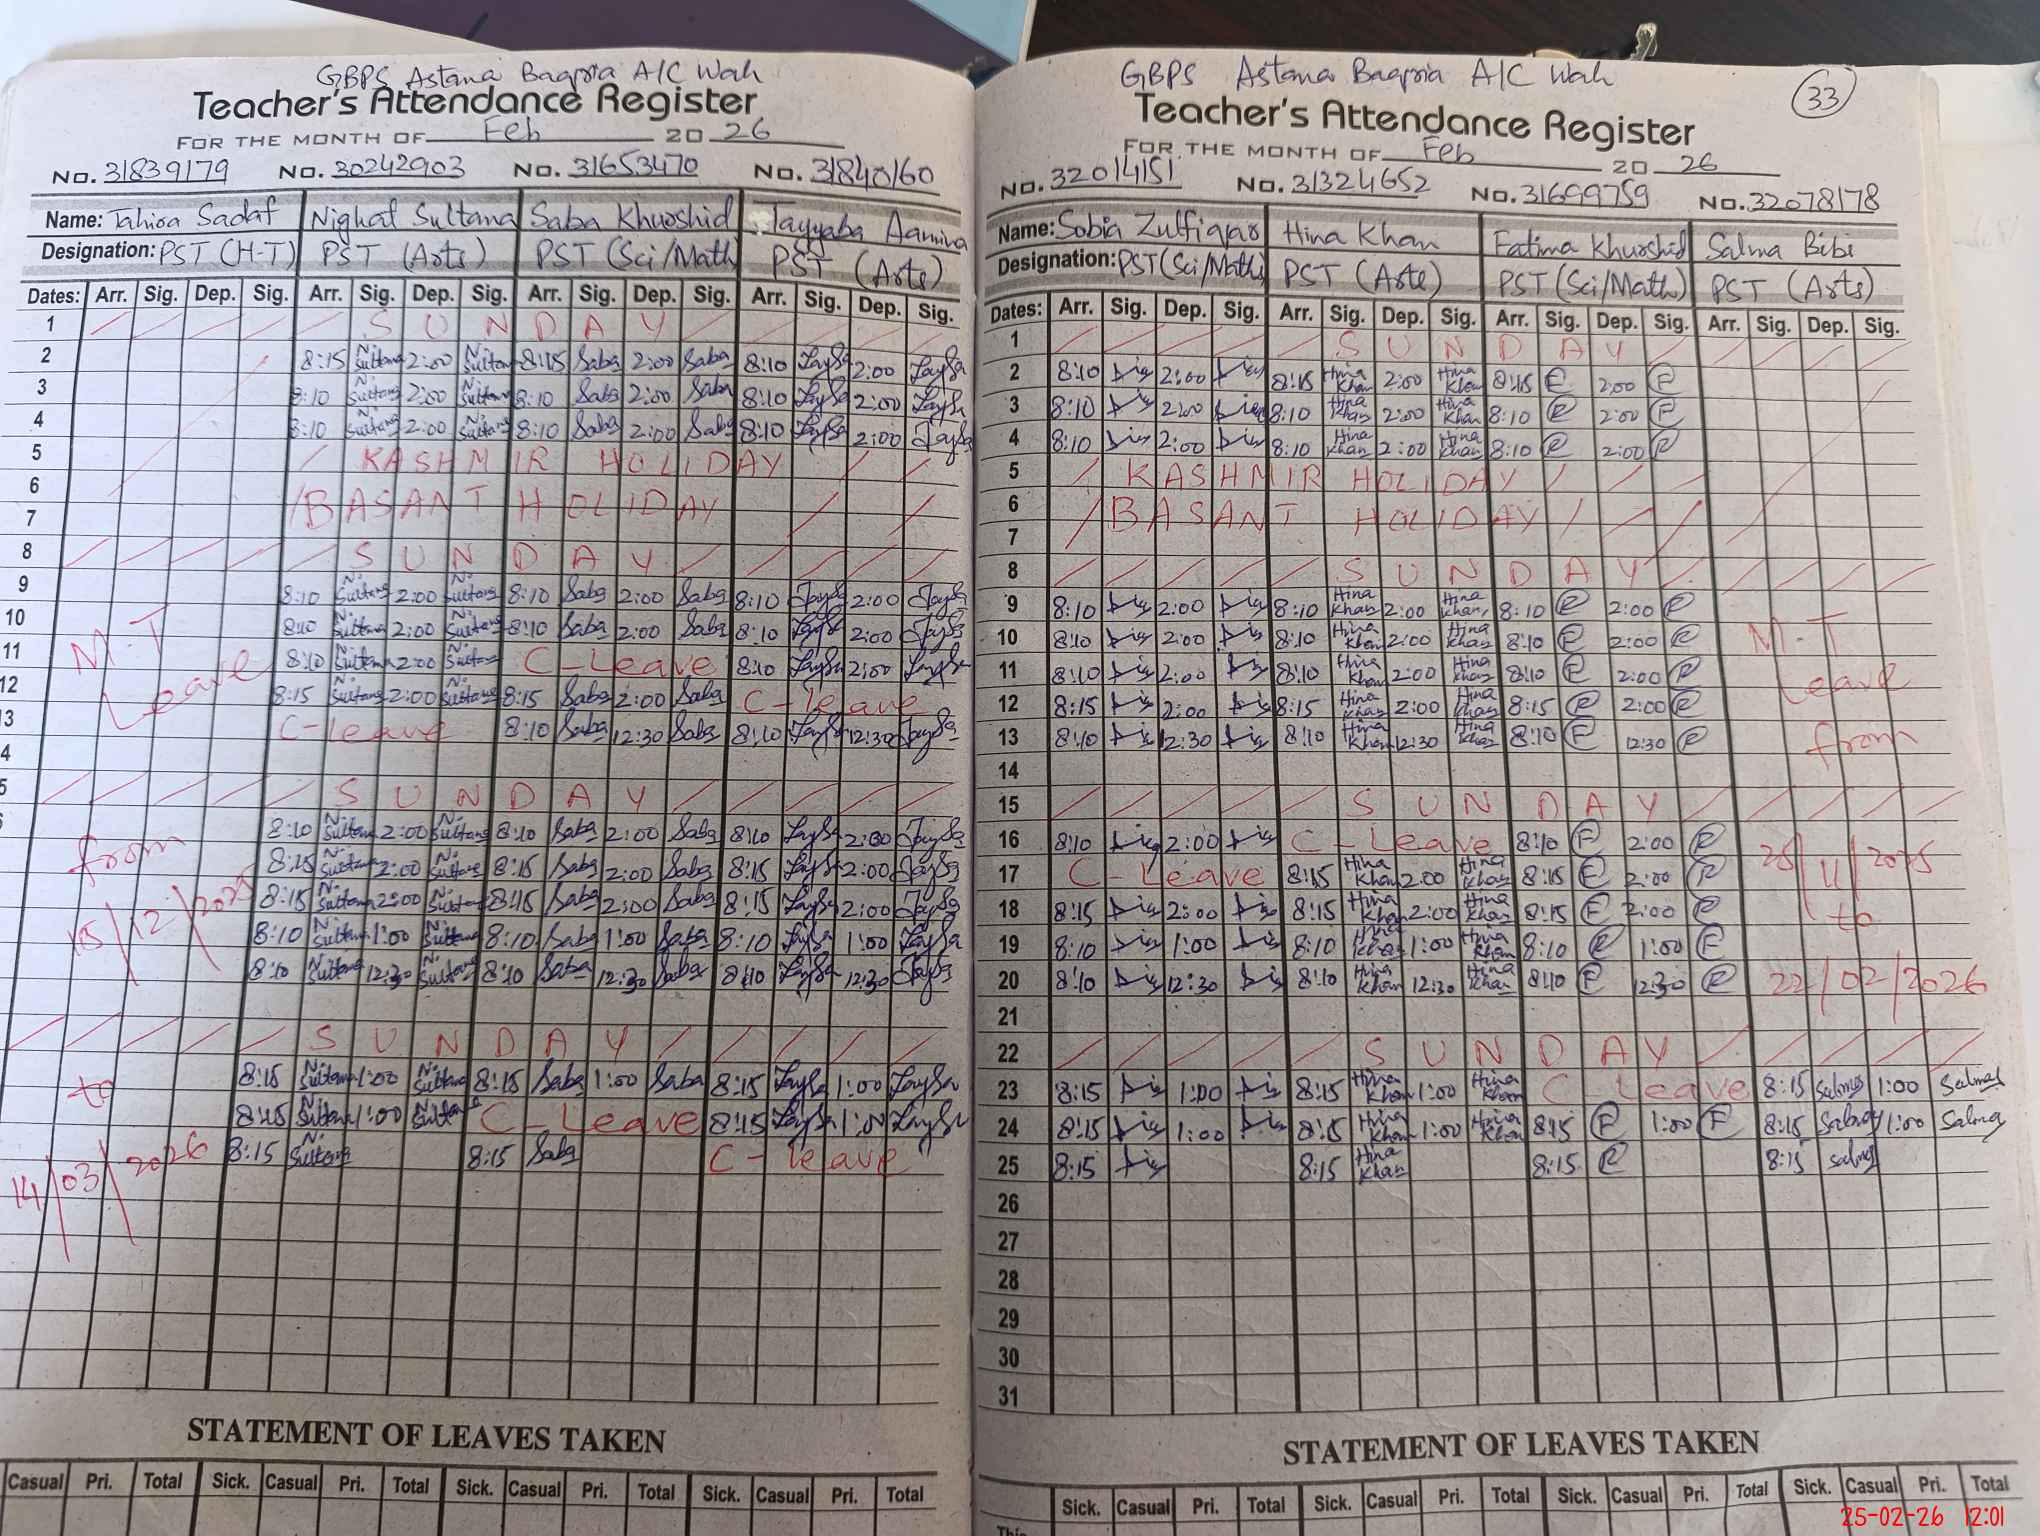 GBPS Astana Baqria A/C Wah
Teacher's Attendance Register
FOR THE MONTH OF Feb 20 26
No. 31839179 No. 30242903 No. 31653470 No. 31840160
Name: Tahira Sadaf Nighat Sultana Saba Khurshid Tayyaba Aamina
Designation: PST (H-T) PST (Arts) PST (Sci/Math) PST (Arts)
Dates: Arr. Sig. Dep. Sig. Arr. Sig. Dep. Sig. Arr. Sig. Dep. Sig. Arr. Sig. Dep. Sig.
1 SUNDAY
2 8:15 N. Sultana 2:00 N. Sultana 8:15 Saba 2:00 Saba 8:10 2:00
3 8:10 N. Sultana 2:00 N. Sultana 8:10 Saba 2:00 Saba 8:10 2:00
4 8:10 N. Sultana 2:00 N. Sultana 8:10 Saba 2:00 Saba 8:10 2:00
5 KASHMIR HOLIDAY
6 BASANT HOLIDAY
7
8 SUNDAY
9 8:10 N. Sultana 2:00 N. Sultana 8:10 Saba 2:00 Saba 8:10 2:00
10 M.T 8:10 N. Sultana 2:00 N. Sultana 8:10 Saba 2:00 Saba 8:10 2:00
11 Leave 8:10 N. Sultana 2:00 N. Sultana C-Leave 8:10 2:00
12 8:15 N. Sultana 2:00 N. Sultana 8:15 Saba 2:00 Saba C-leave
13 C-leave 8:10 Saba 12:30 Saba 8:10 12:30
4
5 SUNDAY
from 8:10 N. Sultana 2:00 N. Sultana 8:10 Saba 2:00 Saba 8:10 2:00
8:15 N. Sultana 2:00 N. Sultana 8:15 Saba 2:00 Saba 8:15 2:00
15/12/2025 8:15 N. Sultana 2:00 N. Sultana 8:15 Saba 2:00 Saba 8:15 2:00
8:10 N. Sultana 1:00 N. Sultana 8:10 Saba 1:00 Saba 8:10 1:00
8:10 N. Sultana 12:30 N. Sultana 8:10 Saba 12:30 Saba 8:10 12:30
SUNDAY
to 8:15 N. Sultana 1:00 N. Sultana 8:15 Saba 1:00 Saba 8:15 1:00
8:15 N. Sultana 1:00 N. Sultana C-Leave 8:15 1:00
14/03/2026 8:15 N. Sultana 8:15 Saba C-leave
STATEMENT OF LEAVES TAKEN
Casual Pri. Total Sick. Casual Pri. Total Sick. Casual Pri. Total Sick. Casual Pri. Total
GBPS Astana Baqria A/C Wah
33
Teacher's Attendance Register
FOR THE MONTH OF Feb 20 26
No. 32014151 No. 31324652 No. 31699759 No. 32078178
Name: Sobia Zulfiqar Hina Khan Fatima Khurshid Salma Bibi
Designation: PST (Sci/Math) PST (Arts) PST (Sci/Math) PST (Arts)
Dates: Arr. Sig. Dep. Sig. Arr. Sig. Dep. Sig. Arr. Sig. Dep. Sig. Arr. Sig. Dep. Sig.
1 SUNDAY
2 8:10 2:00 8:15 Hina Khan 2:00 Hina Khan 8:15 F 2:00 F
3 8:10 2:00 8:10 Hina Khan 2:00 Hina Khan 8:10 F 2:00 F
4 8:10 2:00 8:10 Hina Khan 2:00 Hina Khan 8:10 F 2:00 F
5 KASHMIR HOLIDAY
6 BASANT HOLIDAY
7
8 SUNDAY
9 8:10 2:00 8:10 Hina Khan 2:00 Hina Khan 8:10 F 2:00 F
10 8:10 2:00 8:10 Hina Khan 2:00 Hina Khan 8:10 F 2:00 F M.T
11 8:10 2:00 8:10 Hina Khan 2:00 Hina Khan 8:10 F 2:00 F Leave
12 8:15 2:00 8:15 Hina Khan 2:00 Hina Khan 8:15 F 2:00 F
13 8:10 12:30 8:10 Hina Khan 12:30 Hina Khan 8:10 F 12:30 F from
14
15 SUNDAY
16 8:10 2:00 C-Leave 8:10 F 2:00 F 25/11/2025
17 C-Leave 8:15 Hina Khan 2:00 Hina Khan 8:15 F 2:00 F
18 8:15 2:00 8:15 Hina Khan 2:00 Hina Khan 8:15 F 2:00 F to
19 8:10 1:00 8:10 Hina Khan 1:00 Hina Khan 8:10 F 1:00 F
20 8:10 12:30 8:10 Hina Khan 12:30 Hina Khan 8:10 F 12:30 F 22/02/2026
21
22 SUNDAY
23 8:15 1:00 8:15 Hina Khan 1:00 Hina Khan C-Leave 8:15 Salma 1:00 Salma
24 8:15 1:00 8:15 Hina Khan 1:00 Hina Khan 8:15 F 1:00 F 8:15 Salma 1:00 Salma
25 8:15 8:15 Hina Khan 8:15 F 8:15 Salma
26
27
28
29
30
31
STATEMENT OF LEAVES TAKEN
Sick. Casual Pri. Total Sick. Casual Pri. Total Sick. Casual Pri. Total Sick. Casual Pri. Total
This
25-02-26 12:01